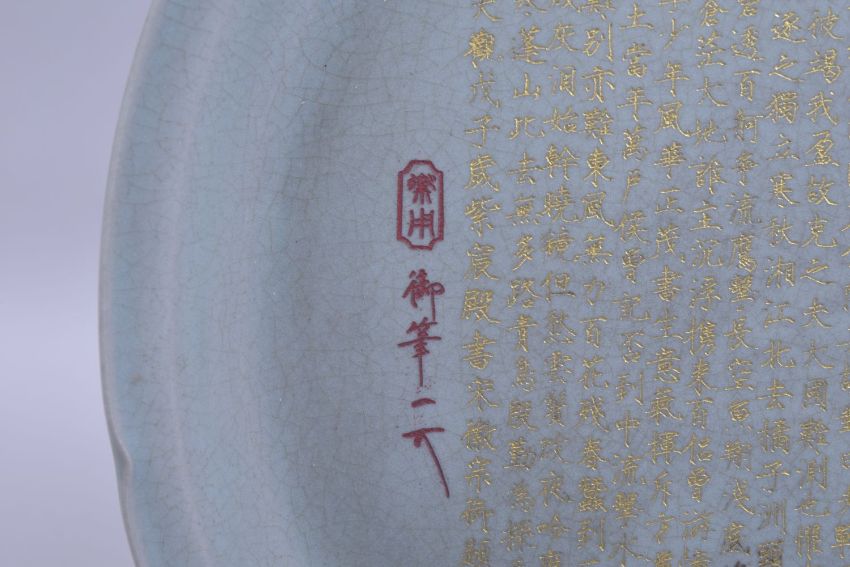 彼竭我盈故克之夫大國難測也懼
逐之獨立寒秋湘江北去橘子洲
透百舸爭流鷹擊長空魚翔淺底
蒼茫大地誰主沉浮攜來百侶曾游
少年風華正茂書生意氣揮斥方
土當年萬戶侯曾記否到中流擊水
別亦難東風無力百花殘春蠶到
成灰淚始幹曉鏡但愁雲鬢改夜吟
蓬山此去無多路青鳥殷勤為探
大觀戊子歲紫宸殿書宋徽宗御題
御筆